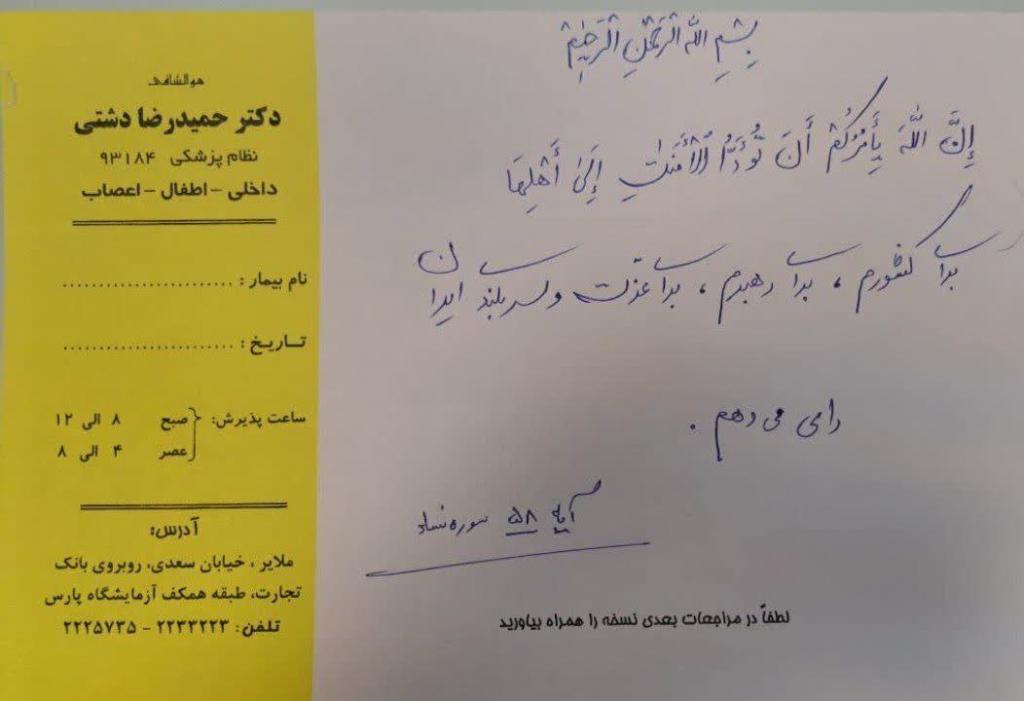 هوالشافی
دکتر حمیدرضا دشتی
نظام پزشکی ۹۳۱۸۴
داخلی - اطفال - اعصاب
نام بیمار : ........................
تـاریـخ : ........................
ساعت پذیرش: صبح ۸ الی ۱۲
عصر ۴ الی ۸
آدرس:
ملایر ، خیابان سعدی، روبروی بانک
تجارت، طبقه همکف آزمایشگاه پارس
تلفن: ۲۲۳۳۲۲۳ - ۲۲۲۵۷۳۵
بِسْمِ اللهِ الرَّحْمٰنِ الرَّحِيْمِ
إِنَّ اللَّهَ يَأْمُرُكُمْ أَن تُؤَدُّ الْأَمَنَٰتِ إِلَىٰ أَهْلِهَا
برا کشورم ، برا رهبرم ، برا عزّت و سربلند ایران
رأی می دهم .
آیه ۵۸ سوره نساء
لطفاً در مراجعات بعدی نسخه را همراه بیاورید